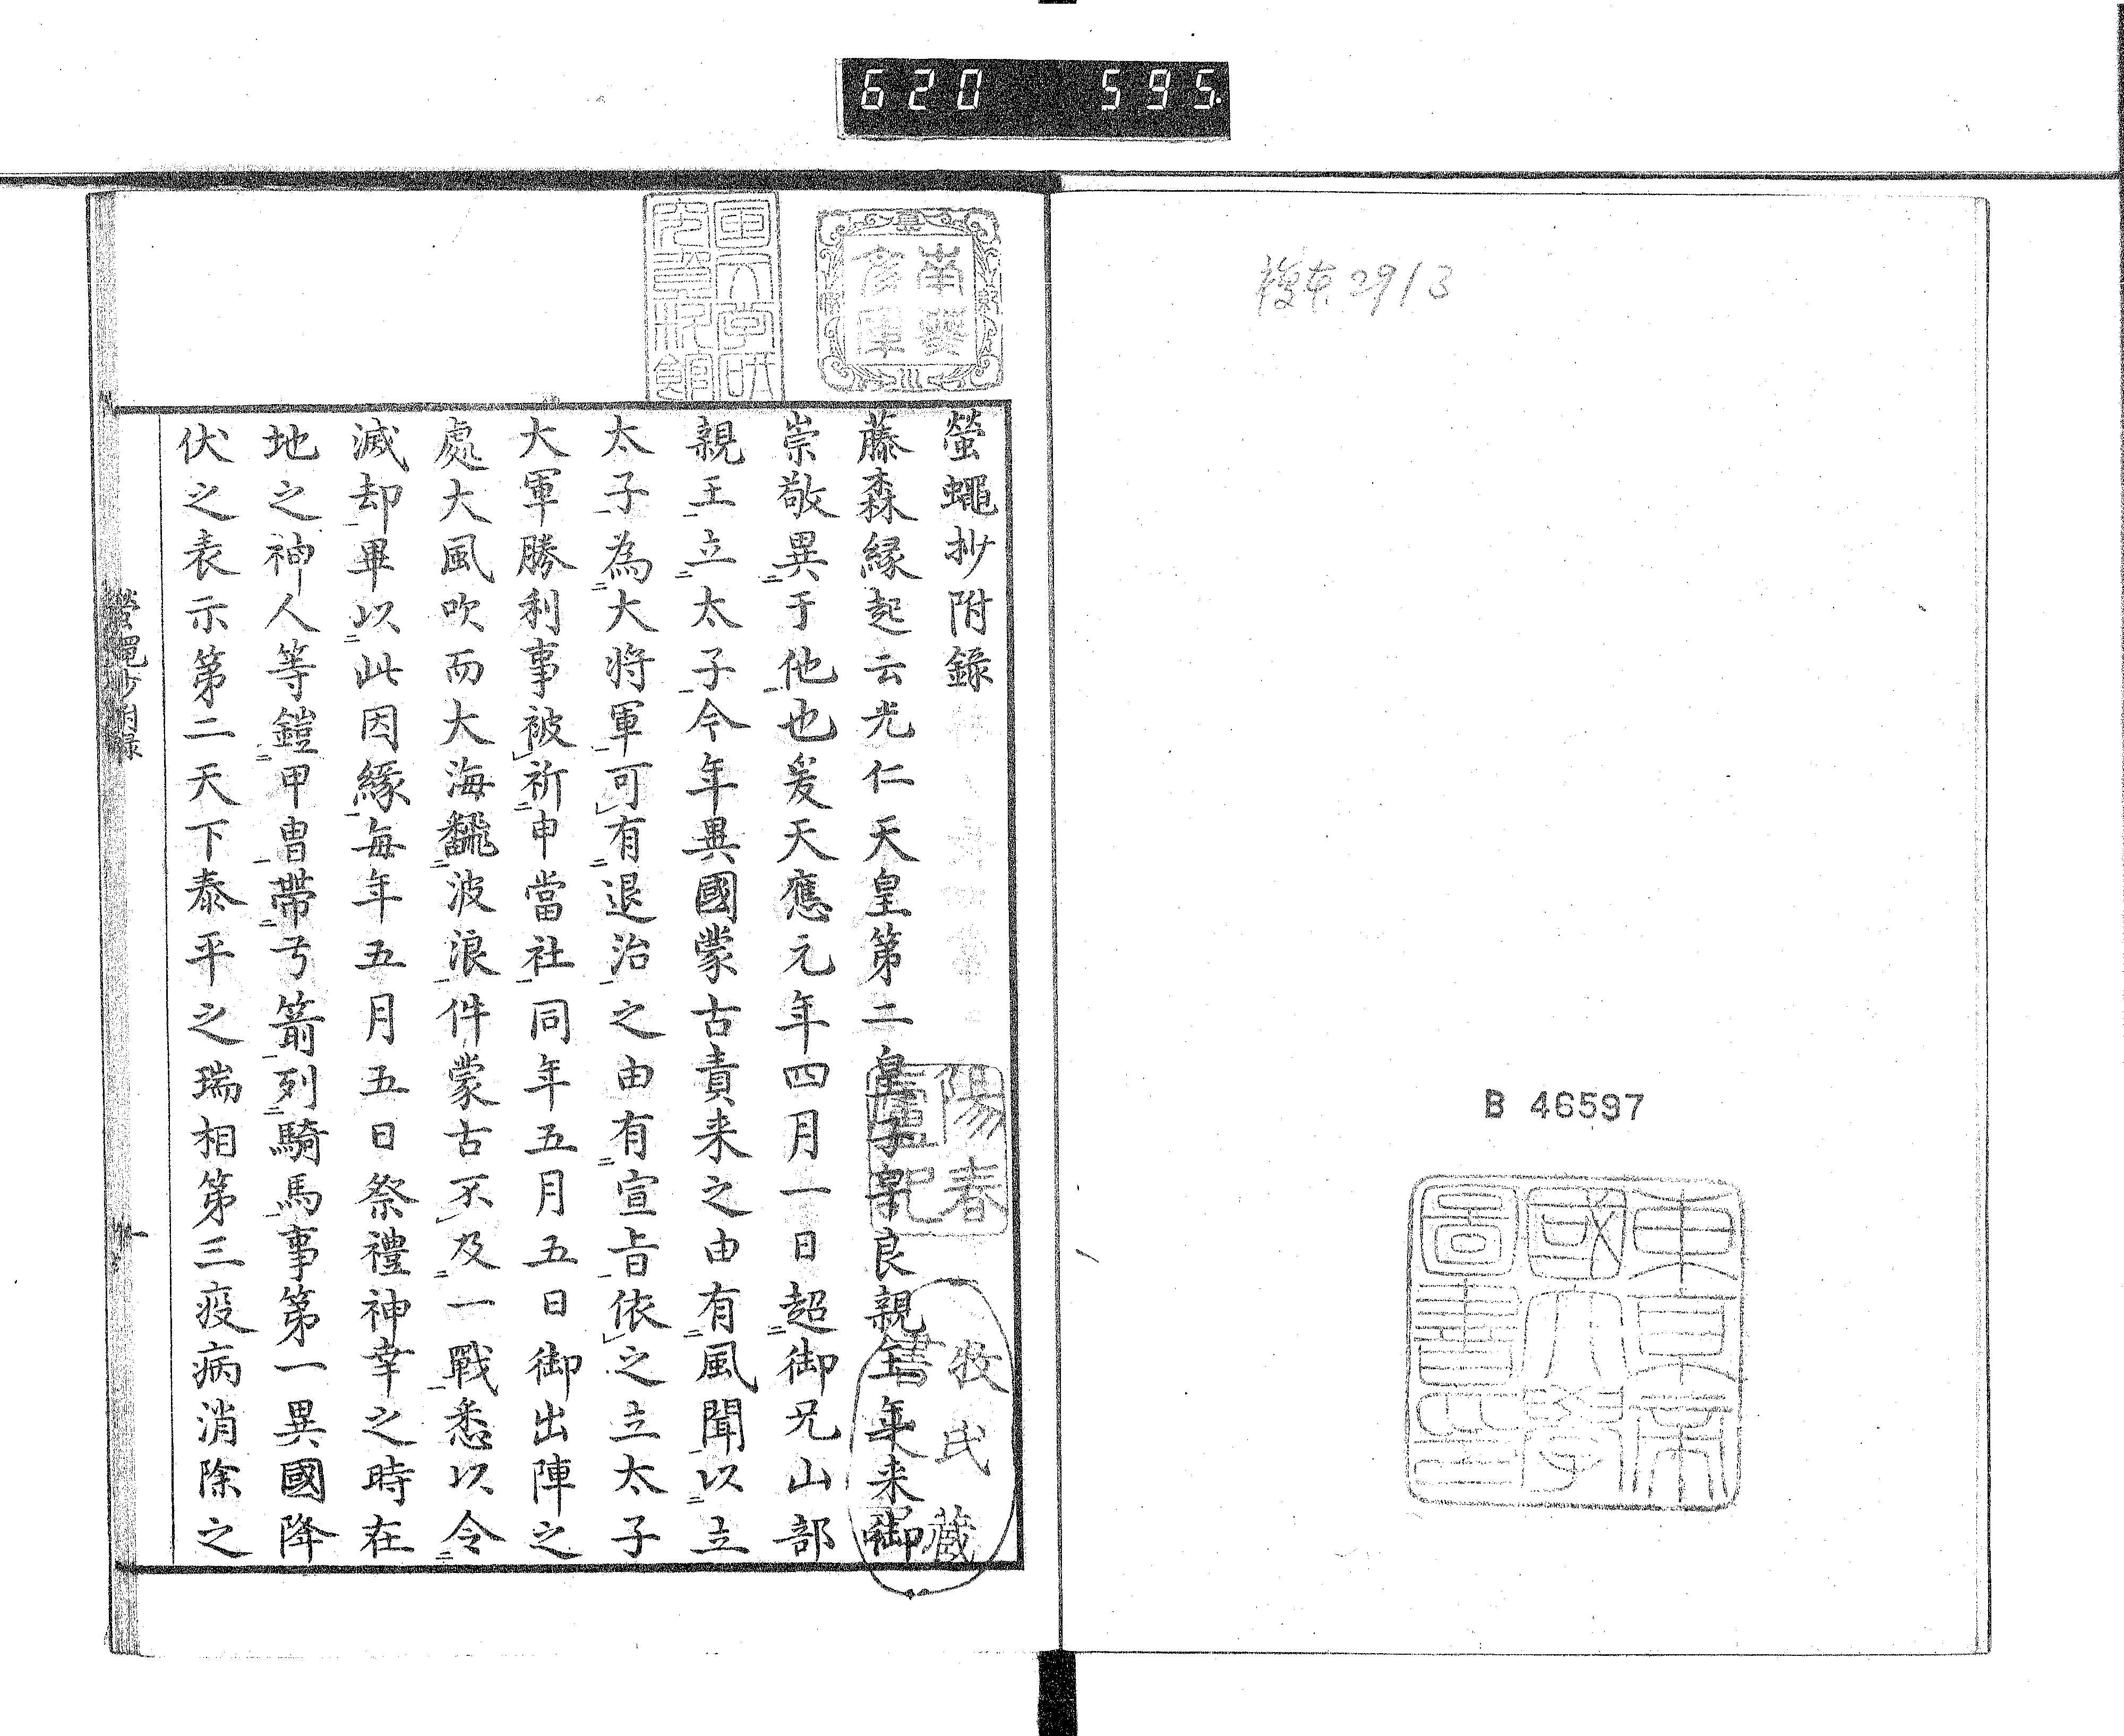 620 595.
複本2913
B 46597
東京帝
國大學
圖書印
南葵
文庫
陽春
廬記
牧氏蔵
螢蠅抄附錄
藤森縁起云光仁天皇第二皇子早良親王年来御
崇敬異于他也爰天應元年四月一日超御兄山部
親王立太子今年異國蒙古責来之由有風聞以立
太子為大将軍可有退治之由有宣旨依之立太子
大軍勝利事被祈申當社同年五月五日御出陣之
處大風吹而大海飜波浪件蒙古不及一戰悉以令
滅却畢以此因縁毎年五月五日祭禮神幸之時在
地之神人等鎧甲冑帶弓箭列騎馬事第一異國降
伏之表示第二天下泰平之瑞相第三疫病消除之
螢蠅抄附録
一